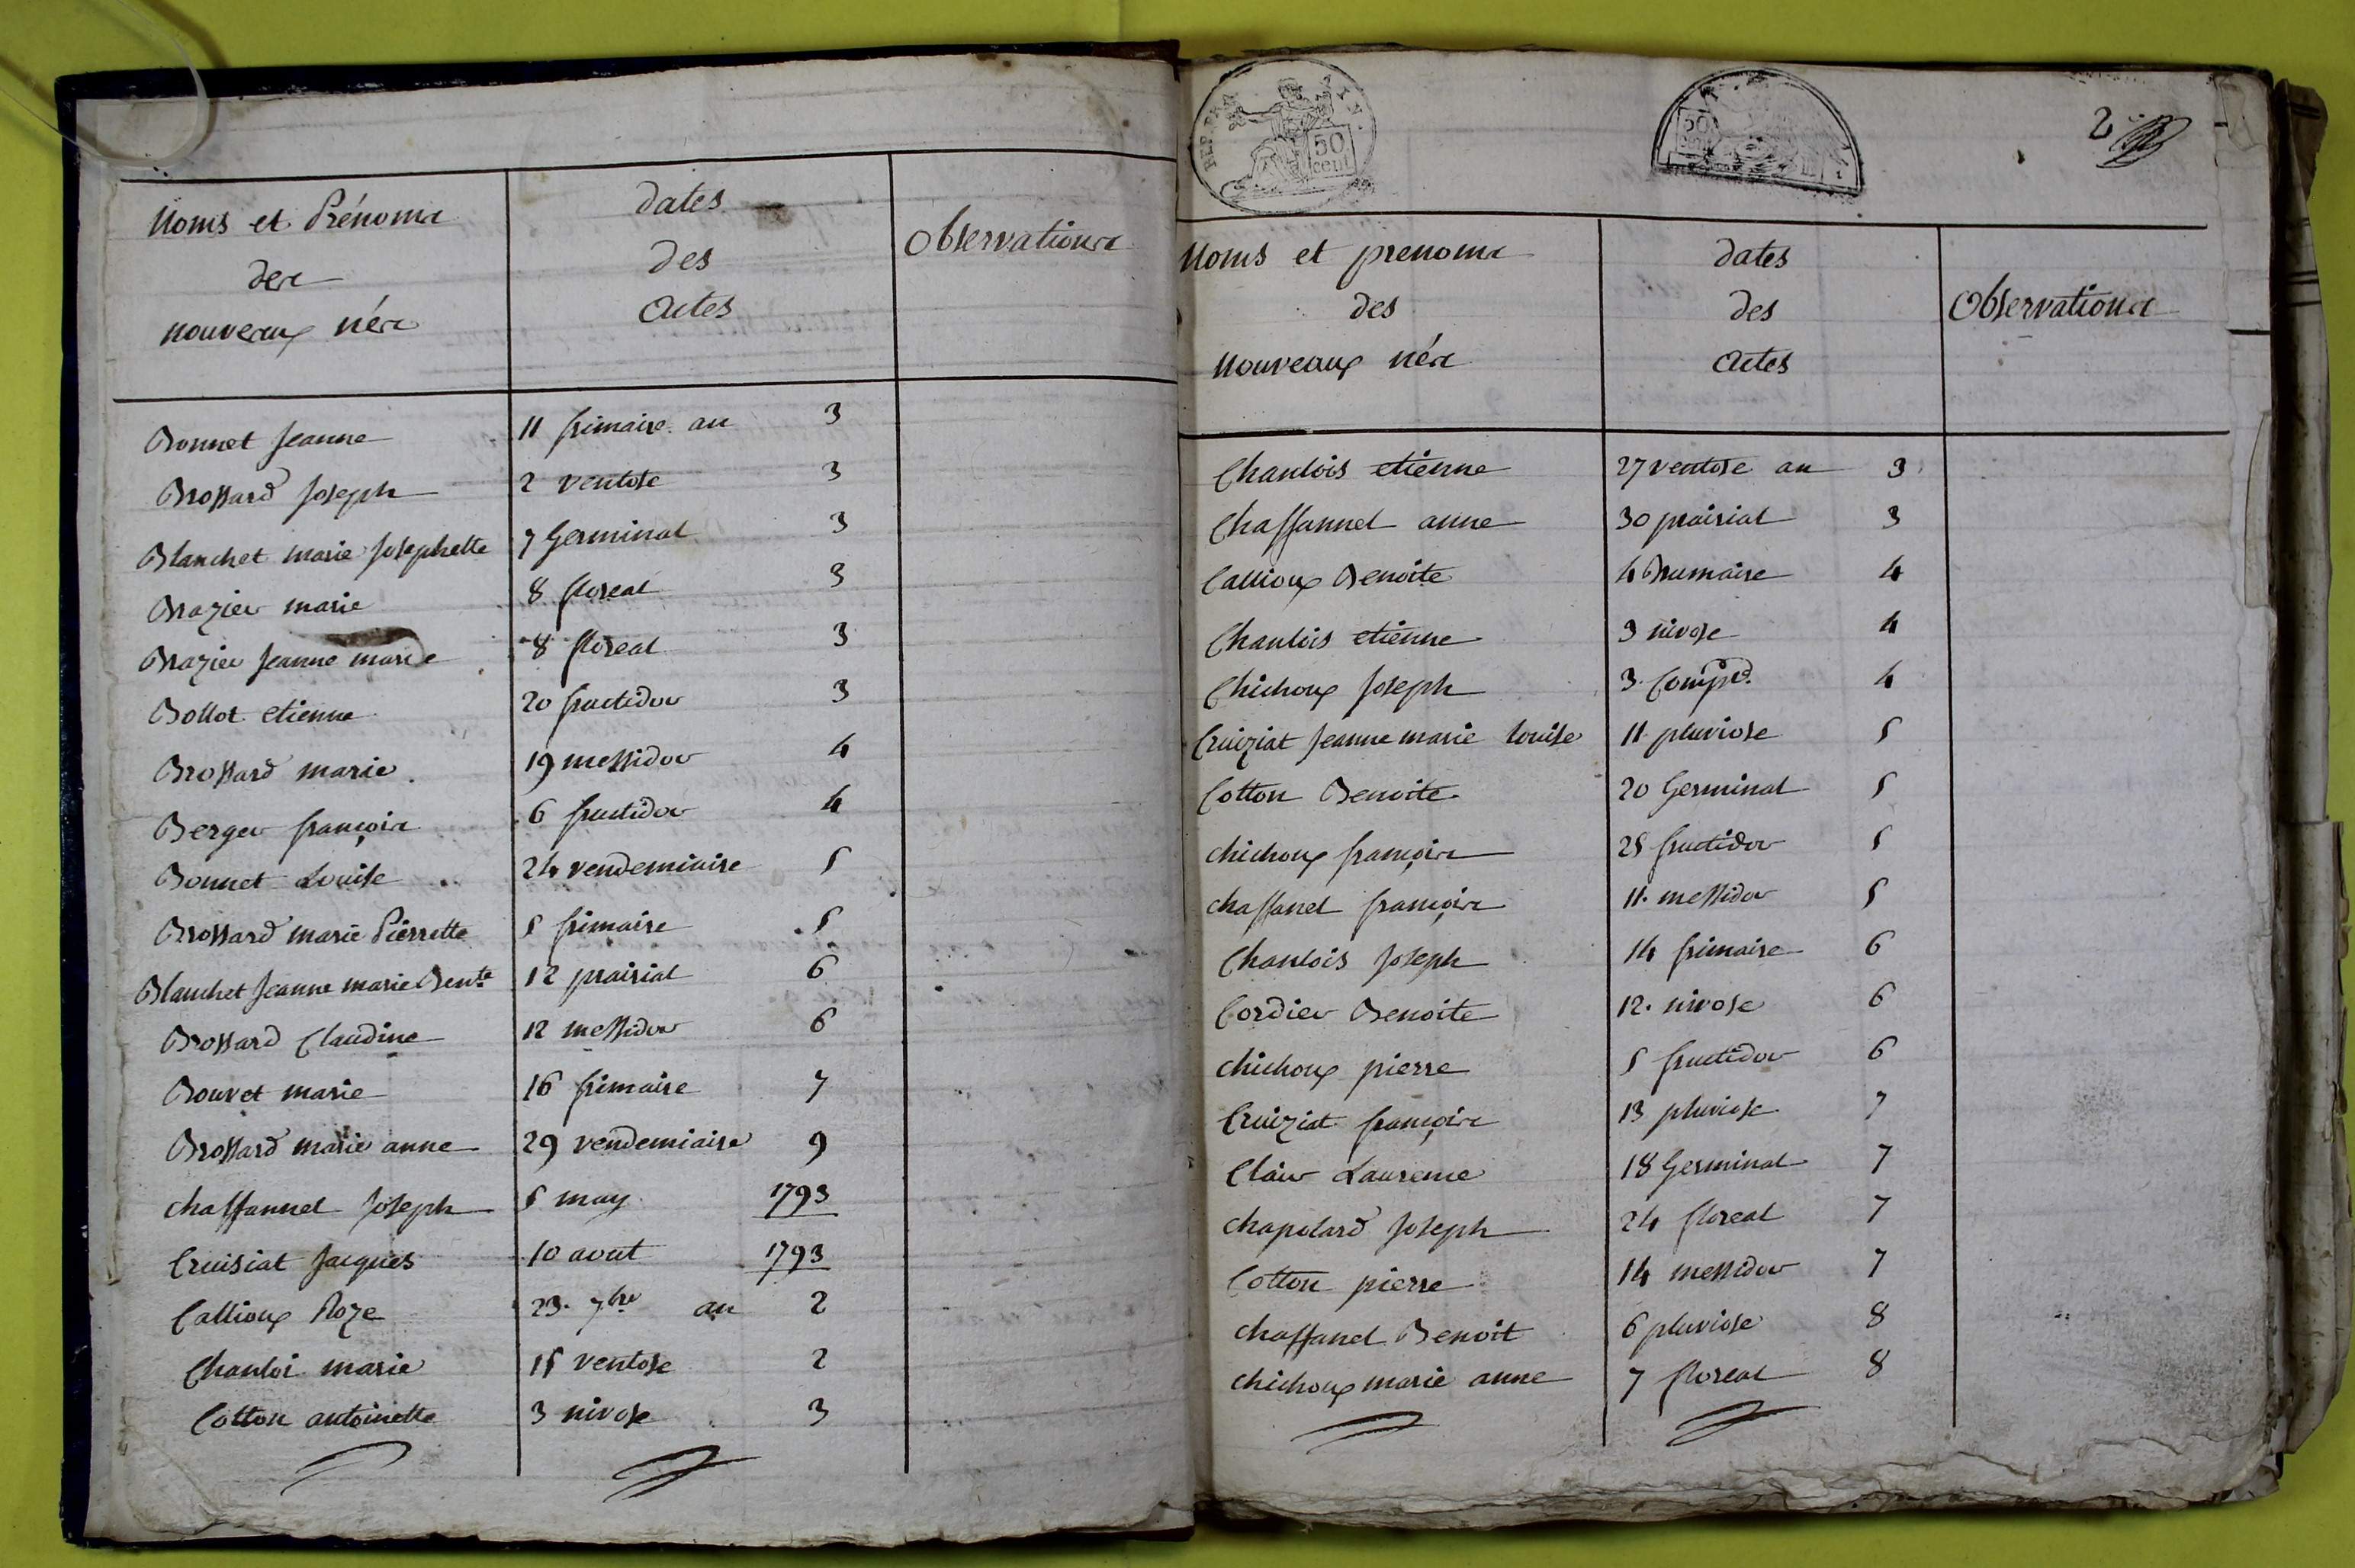 Noms et Prénoms
des
nouveaux nés
dates
des
actes
Observations
Bonnet Jeanne 11 frimaire an 3
Brossard Joseph 2 ventose 3
Blanchet marie Josephette 7 Germinal 3
Brazier marie 8 floreal 3
Brazier Jeanne marie 8 floreal 3
Bollot etienne 20 fructidor 3
Brossard marie 19 messidor 4
Berger françois 6 fructidor 4
Bonnet Louise 24 vendemiaire 5
Brossard marie Pierrette 5 frimaire 5
Blanchet Jeanne marie Bente 12 prairial 6
Brossard Claudine 12 messidor 6
Bouvet marie 16 frimaire 7
Brossard marie anne 29 vendemiaire 9
chaffannel Joseph 5 may 1793
Cruisiat Jacques 10 aout 1793
Callioux Roze 23. 7bre an 2
Chanloi marie 15 ventose 2
Cotton antoinette 3 nivose 3
50
cent
50
2
Noms et prenoms
des
Nouveaux nés
dates
des
actes
Observations
Chanlois etienne 27 ventose an 3
Chaffannel anne 30 prairial 3
Callioux Benoite 4 Brumaire 4
Chanlois etienne 3 nivose 4
Chichoux Joseph 3. Comprè. 4
Cruiziat Jeanne marie louise 11 pluviose 5
Cotton Benoite 20 Germinal 5
chichoux françois 25 fructidor 5
chaffanel françois 11. messidor 5
Chanlois Joseph 14 frimaire 6
Cordier Benoite 12. nivose 6
chichoux pierre 5 fructidor 6
Cruiziat françois 13 pluviose 7
Clair Laurence 18 Germinal 7
chapolard Joseph 24 floreal 7
Cotton pierre 14 messidor 7
chaffanel Benoit 6 pluviose 8
chichoux marie anne 7 floreal 8